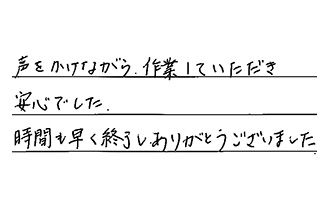 声をかけながら、作業していただき
安心でした。
時間も早く終了し、ありがとうございました